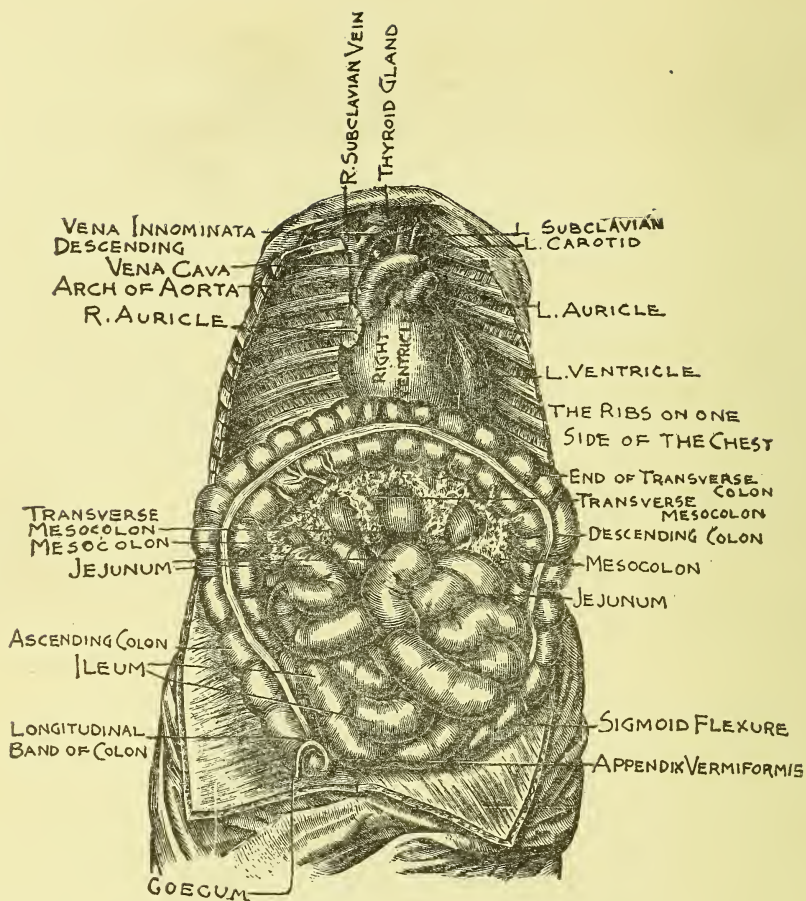 R. SUBCLAVIAN VEIN
THYROID GLAND
VENA INNOMINATA
DESCENDING
VENA CAVA
ARCH OF AORTA
R. AURICLE
L SUBCLAVIAN
L. CAROTID
L. AURICLE
RIGHT
VENTRICLE
L. VENTRICLE
THE RIBS ON ONE
SIDE OF THE CHEST
END OF TRANSVERSE
COLON
TRANSVERSE
MESOCOLON
DESCENDING COLON
MESOCOLON
JEJUNUM
TRANSVERSE
MESOCOLON
MESOCOLON
JEJUNUM
ASCENDING COLON
ILEUM
LONGITUDINAL
BAND OF COLON
SIGMOID FLEXURE
APPENDIX VERMIFORMIS
COECUM